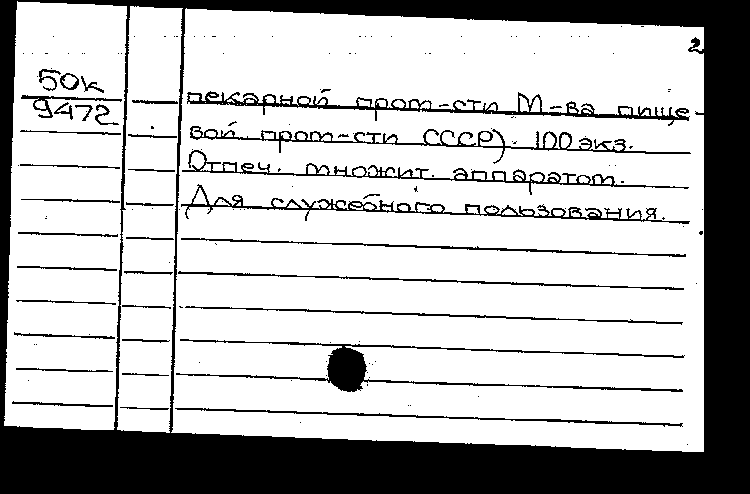 2
50к
9472
пекарной пром-сти М-ва пище-
вой пром-сти СССР). 100 экз.
Отпеч. множит. аппаратом.
Для служебного пользования.